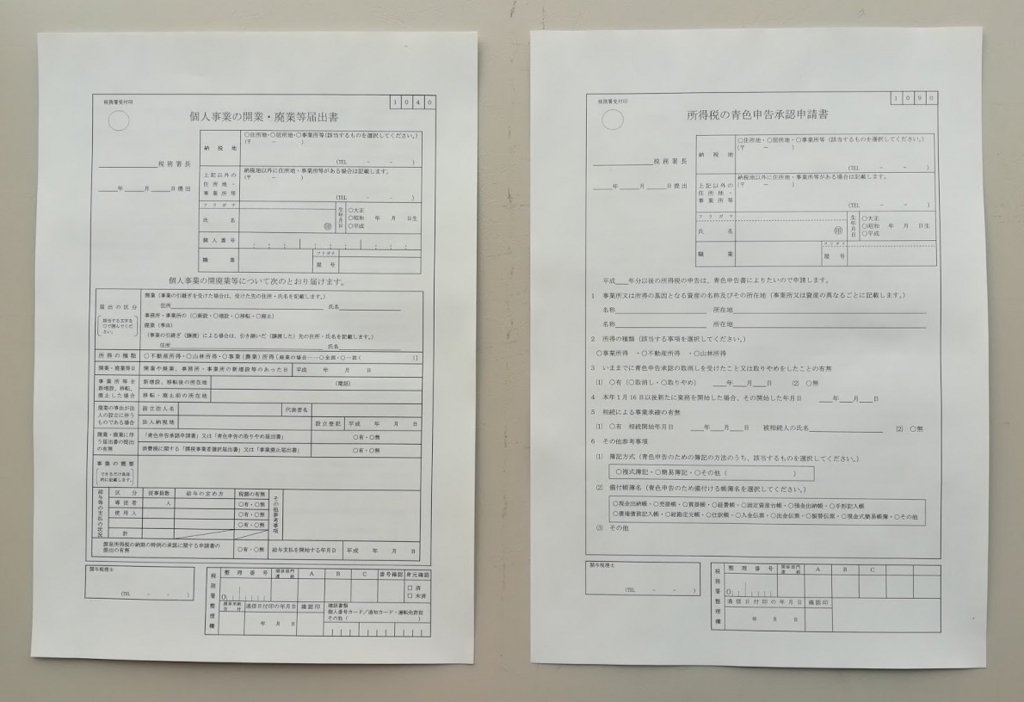 税務署受付印
1 0 4 0
個人事業の開業・廃業等届出書
税務署長
年 月 日提出
納税地
○住所地・○居所地・○事業所等(該当するものを選択してください。)
(〒 － )
(TEL － － )
上記以外の住所地・事業所等
納税地以外に住所地・事業所等がある場合は記載します。
(〒 － )
(TEL － － )
フリガナ
氏名
㊞
生年月日
○大正
○昭和 年 月 日生
○平成
個人番号
職業
フリガナ
屋号
個人事業の開廃業等について次のとおり届けます。
届出の区分
該当する文字を○で囲んでください。
開業(事業の引継ぎを受けた場合は、受けた先の住所・氏名を記載します。)
住所 氏名
事務所・事業所の(○新設・○増設・○移転・○廃止)
廃業(事由)
(事業の引継ぎ(譲渡)による場合は、引き継いだ(譲渡した)先の住所・氏名を記載します。)
住所 氏名
所得の種類
○不動産所得・○山林所得・○事業(農業)所得〔廃業の場合……○全部・○一部( )〕
開業・廃業等日
開業や廃業、事務所・事業所の新増設等のあった日 平成 年 月 日
事業所等を新増設、移転、廃止した場合
新増設、移転後の所在地 (電話)
移転・廃止前の所在地
廃業の事由が法人の設立に伴うものである場合
設立法人名 代表者名
法人納税地 設立登記 平成 年 月 日
開業・廃業に伴う届出書の提出の有無
「青色申告承認申請書」又は「青色申告の取りやめ届出書」 ○有・○無
消費税に関する「課税事業者選択届出書」又は「事業廃止届出書」 ○有・○無
事業の概要
できるだけ具体的に記載します。
給与等の支払の状況
区分 従事員数 給与の定め方 税額の有無
専従者 人 ○有・○無
使用人 ○有・○無
○有・○無
計
その他参考事項
源泉所得税の納期の特例の承認に関する申請書の提出の有無
○有・○無
給与支払を開始する年月日 平成 年 月 日
関与税理士
(TEL － － )
税務署整理欄
整理番号 関係部門連絡 A B C 番号確認 身元確認
0
□ 済
□ 未済
通信日付印の年月日 確認印
年 月 日
確認書類
個人番号カード／通知カード・運転免許証
その他( )
税務署受付印
1 0 9 0
所得税の青色申告承認申請書
税務署長
年 月 日提出
納税地
○住所地・○居所地・○事業所等(該当するものを選択してください。)
(〒 － )
(TEL － － )
上記以外の住所地・事業所等
納税地以外に住所地・事業所等がある場合は記載します。
(〒 － )
(TEL － － )
フリガナ
氏名
㊞
生年月日
○大正
○昭和 年 月 日生
○平成
職業
フリガナ
屋号
平成 年分以後の所得税の申告は、青色申告書によりたいので申請します。
1 事業所又は所得の基因となる資産の名称及びその所在地(事業所又は資産の異なるごとに記載します。)
名称 所在地
名称 所在地
2 所得の種類(該当する事項を選択してください。)
○事業所得 ・○不動産所得 ・○山林所得
3 いままでに青色申告承認の取消しを受けたこと又は取りやめをしたことの有無
(1) ○有(○取消し・○取りやめ) 年 月 日 (2) ○無
4 本年1月16日以後新たに業務を開始した場合、その開始した年月日 年 月 日
5 相続による事業承継の有無
(1) ○有 相続開始年月日 年 月 日 被相続人の氏名 (2) ○無
6 その他参考事項
(1) 簿記方式(青色申告のための簿記の方法のうち、該当するものを選択してください。)
○複式簿記・○簡易簿記・○その他( )
(2) 備付帳簿名(青色申告のため備付ける帳簿名を選択してください。)
○現金出納帳・○売掛帳・○買掛帳・○経費帳・○固定資産台帳・○預金出納帳・○手形記入帳
○債権債務記入帳・○総勘定元帳・○仕訳帳・○入金伝票・○出金伝票・○振替伝票・○現金式簡易帳簿・○その他
(3) その他
関与税理士
(TEL － － )
税務署整理欄
整理番号 関係部門連絡 A B C
0
通信日付印の年月日 確認印
年 月 日